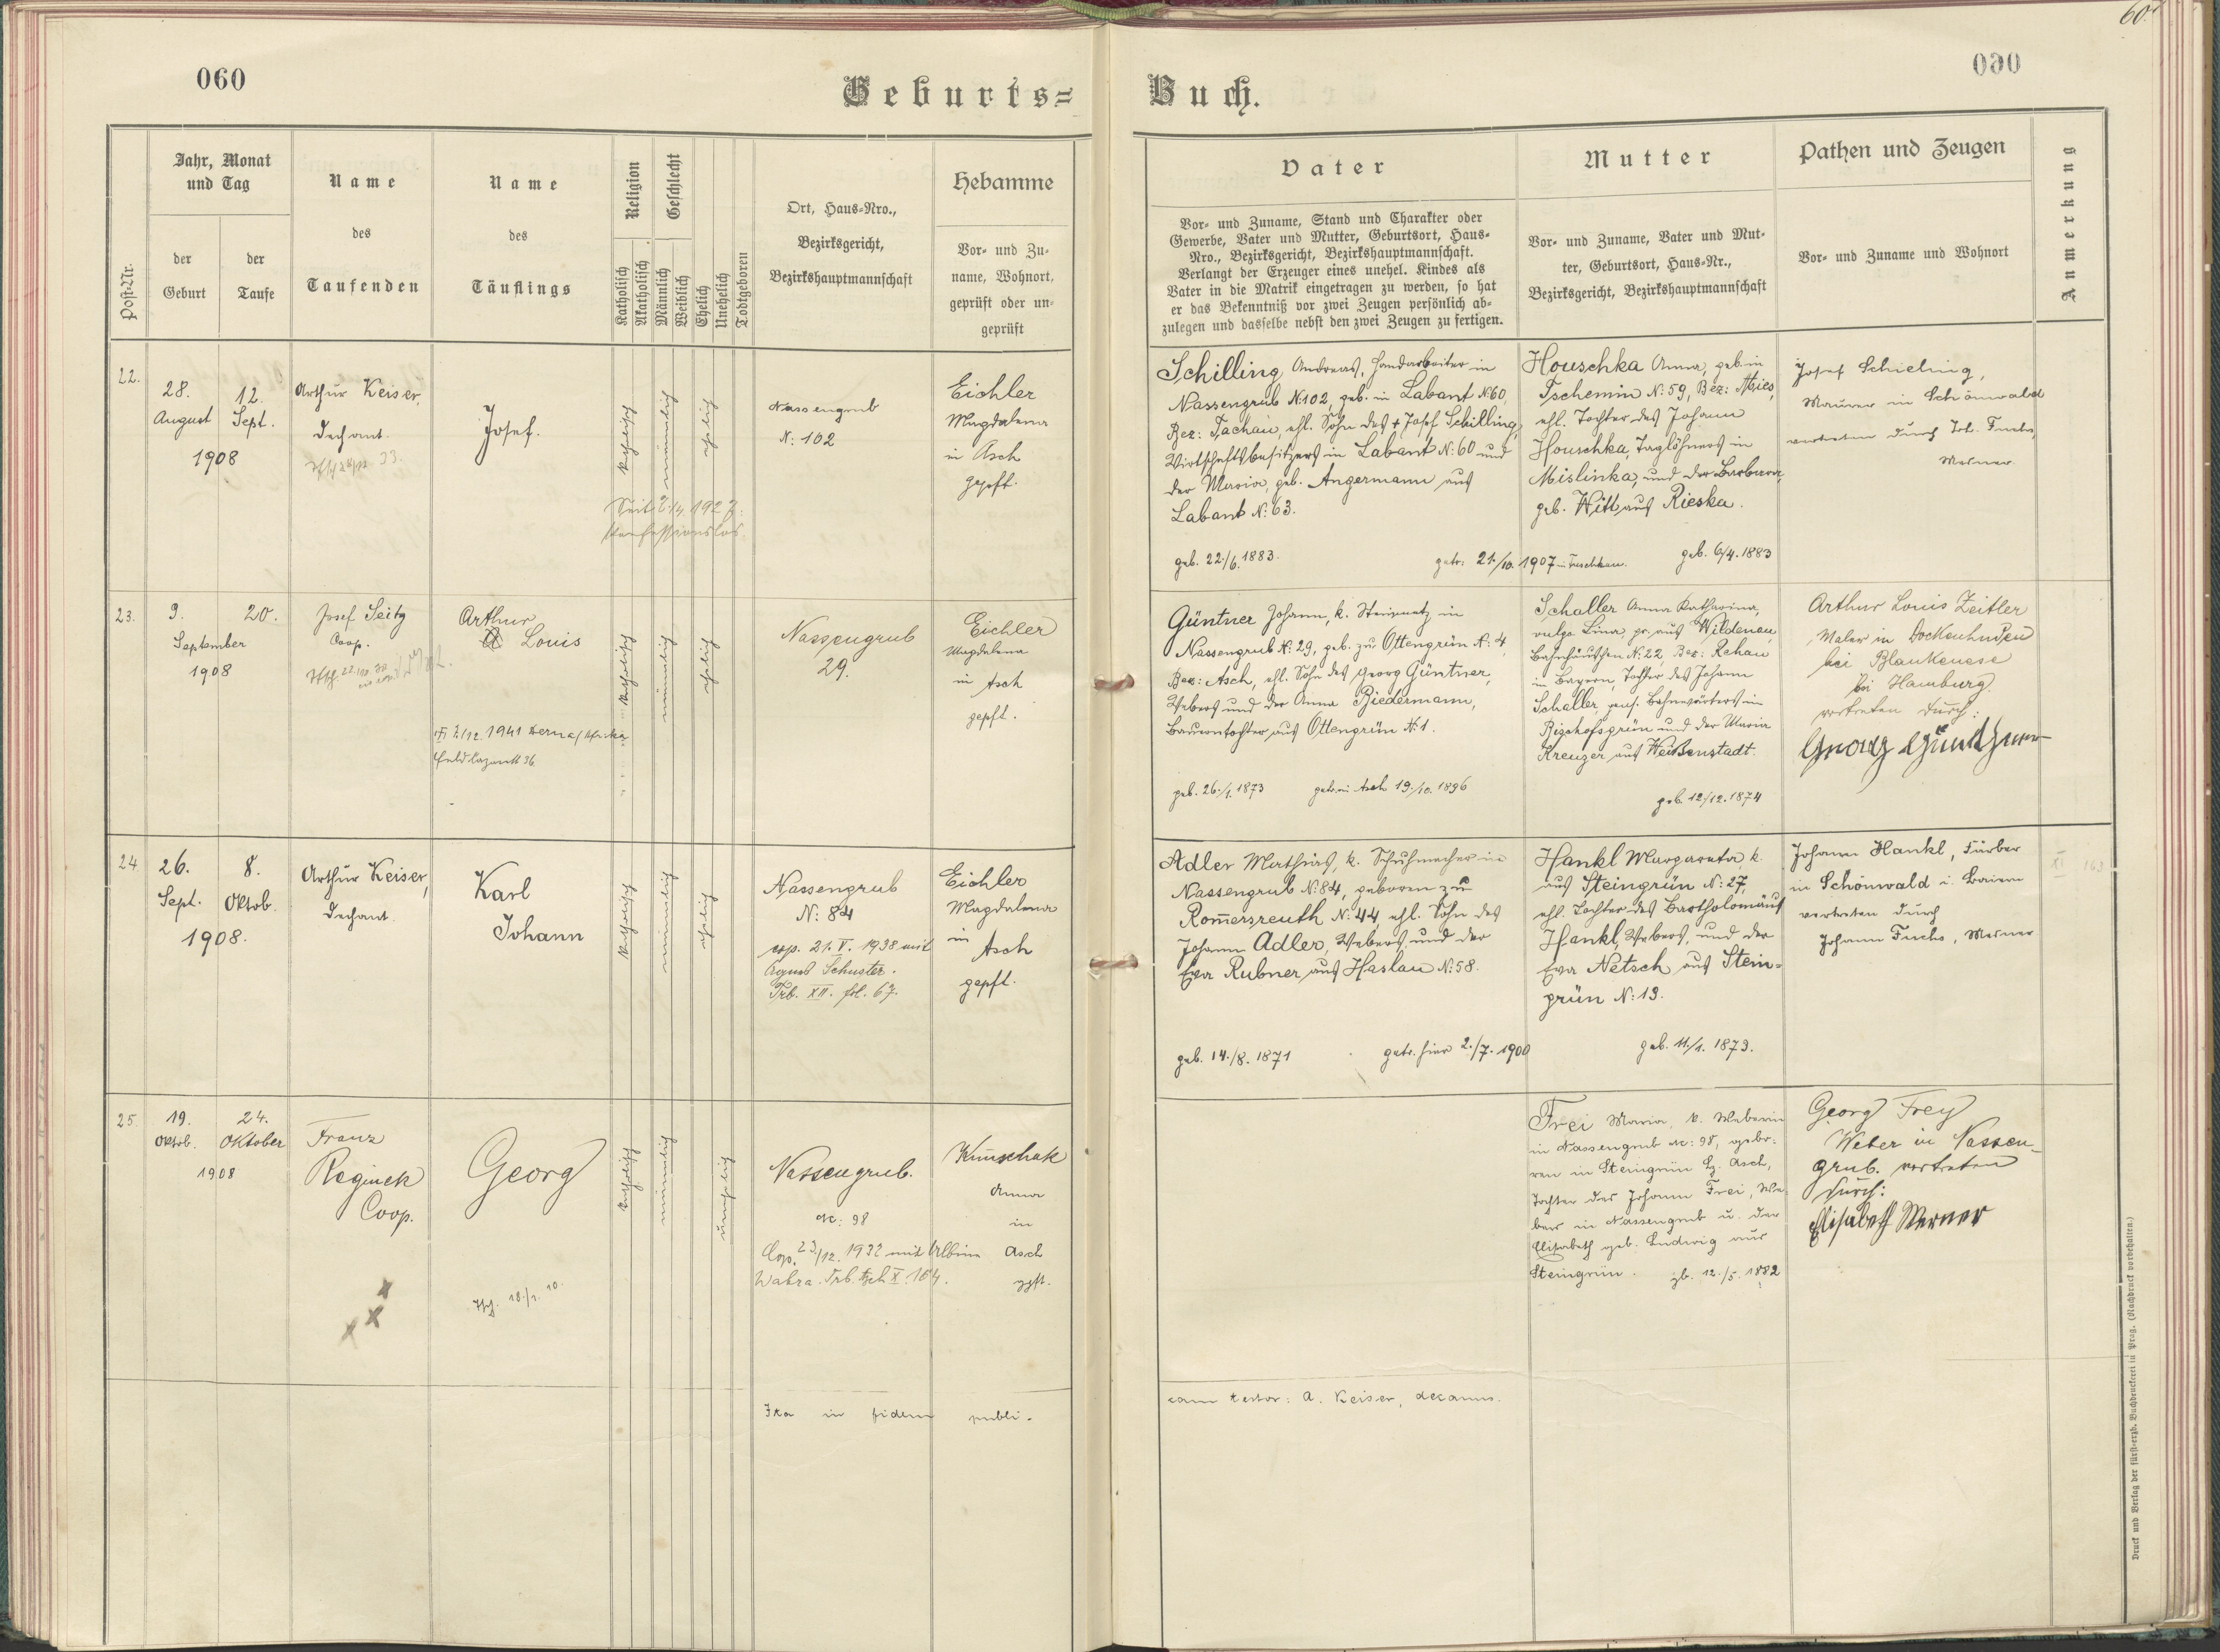 060
Geburts=
Post-Nr.
Jahr, Monat
und Tag
der
Geburt
der
Taufe
Name
des
Taufenden
Name
des
Täuflings
Religion
Katholisch
Akatholisch
Geschlecht
Männlich
Weiblich
Ehelich
Unehelich
Todtgeboren
Ort, Haus=Nro.,
Bezirksgericht,
Bezirkshauptmannschaft
Hebamme
Vor= und Zu=
name, Wohnort,
geprüft oder un=
geprüft
22.
28.
August
12.
Sept.
1908
Arthur Keiser,
Dechant.
Josef.
katholisch
männlich
ehelich
Seit 1927
konfessionslos
Nassengrub
N: 102
Eichler
Magdalena
in Asch
gepft.
23.
9.
September
20.
1908
Josef Seitz
Coop.
Arthur
Louis
1941 Derna/Afrika
Feldlazarett 36
katholisch
männlich
ehelich
Nassengrub
29.
Eichler
Magdalena
in Asch
gepft.
24.
26.
Sept.
8.
Oktob.
1908.
Arthur Keiser,
Dechant.
Karl
Johann
katholisch
männlich
ehelich
Nassengrub
N: 84
cop. 21. V. 1938 mit
Agnes Schuster.
Trb. XII. fol. 67.
Eichler
Magdalena
in
Asch
gepft.
25.
19.
Oktob.
24.
Oktober
1908
Franz
Reginek
Coop.
Georg
katholisch
männlich
unehelich
Nassengrub.
N: 98
Cop. 23/12. 1932 mit Albine
Wahra. Trb. Asch X. 164.
Kunschak
Anna
in
Asch
gpft.
Ita in fidem publi-
60.
060
Buch.
Vater
Vor= und Zuname, Stand und Charakter oder
Gewerbe, Vater und Mutter, Geburtsort, Haus=
Nro., Bezirksgericht, Bezirkshauptmannschaft.
Verlangt der Erzeuger eines unehel. Kindes als
Vater in die Matrik eingetragen zu werden, so hat
er das Bekenntniß vor zwei Zeugen persönlich ab=
zulegen und dasselbe nebst den zwei Zeugen zu fertigen.
Mutter
Vor= und Zuname, Vater und Mut=
ter, Geburtsort, Haus=Nr.,
Bezirksgericht, Bezirkshauptmannschaft
Pathen und Zeugen
Vor= und Zuname und Wohnort
Anmerkung
Schilling Andreas, Handarbeiter in
Nassengrub N:102, geb. in Labant N:60,
Bez: Tachau, ehl. Sohn des + Josef Schilling,
Wirtschaftsbesitzers in Labant N:60 und
der Maria, geb. Angermann aus
Labant N:63.
geb. 22./6. 1883.
getr: 21./10. 1907 in Tuschkau.
Houschka Anna, geb. in
Tschemin N:59, Bez: Mies,
ehl. Tochter des Johann
Houschka, Taglöhners in
Mislinka, und der Barbara,
geb. Witt aus Rieska.
geb. 6/4. 1883
Josef Schieling,
Maurer in Schönwald
vertreten durch Joh. Fuchs,
Mesner.
Güntner Johann, k. Steinmetz in
Nassengrub N: 29, geb. zu Ottengrün N: 4,
Bez: Asch, ehl. Sohn des Georg Güntner,
Webers und der Anna Riedermann,
Bauerntochter aus Ottengrün N:1.
geb. 26./1. 1873
getr. in Asch 19./10. 1896
Schaller Anna Katharina,
vulgo Lina, pr. aus Wildenau,
Bahnhäuschen N: 22, Bez: Rehau
in Bayern, Tochter des Johann
Schaller, pens. Bahnwärters in
Bischofsgrün und der Maria
Kreuzer aus Weißenstadt.
geb. 12/12. 1874
Arthur Louis Zeitler
Maler in Dockenhuden
bei Blankenese
bei Hamburg.
vertreten durch:
Georg Günthner
Adler Mathias, k. Schuhmacher in
Nassengrub N:84, geboren zu
Rom̄ersreuth N:44 ehl. Sohn des
Johann Adler, Webers und der
Eva Rubner aus Haslau N:58.
geb. 14./8. 1871
getr. hier 2./7. 1900
Hankl Margareta, k.
aus Steingrün N: 27,
ehl. Tochter des Bartholomäus
Hankl, Webers, und der
Eva Netsch aus Stein=
grün N:13.
geb. 11./1. 1873.
Johann Hankl, Färber
in Schönwald i. Baiern
vertreten durch
Johann Fuchs, Mesner
XI 163
Frei Maria, k. Weberin
in Nassengrub N: 98, gebo-
ren in Steingrün Bz. Asch,
Tochter des Johann Frei, We-
bers in Nassengrub u. der
Elisabeth geb. Ludwig aus
Steingrün. gb. 12./5. 1882
Georg Frey
Weber in Nassen-
grub. vertreten
durch:
Elisabeth Werner
cam testor: A. Keiser, decanus.
Druck und Verlag der fürst=erzb. Buchdruckerei in Prag. (Nachdruck vorbehalten.)